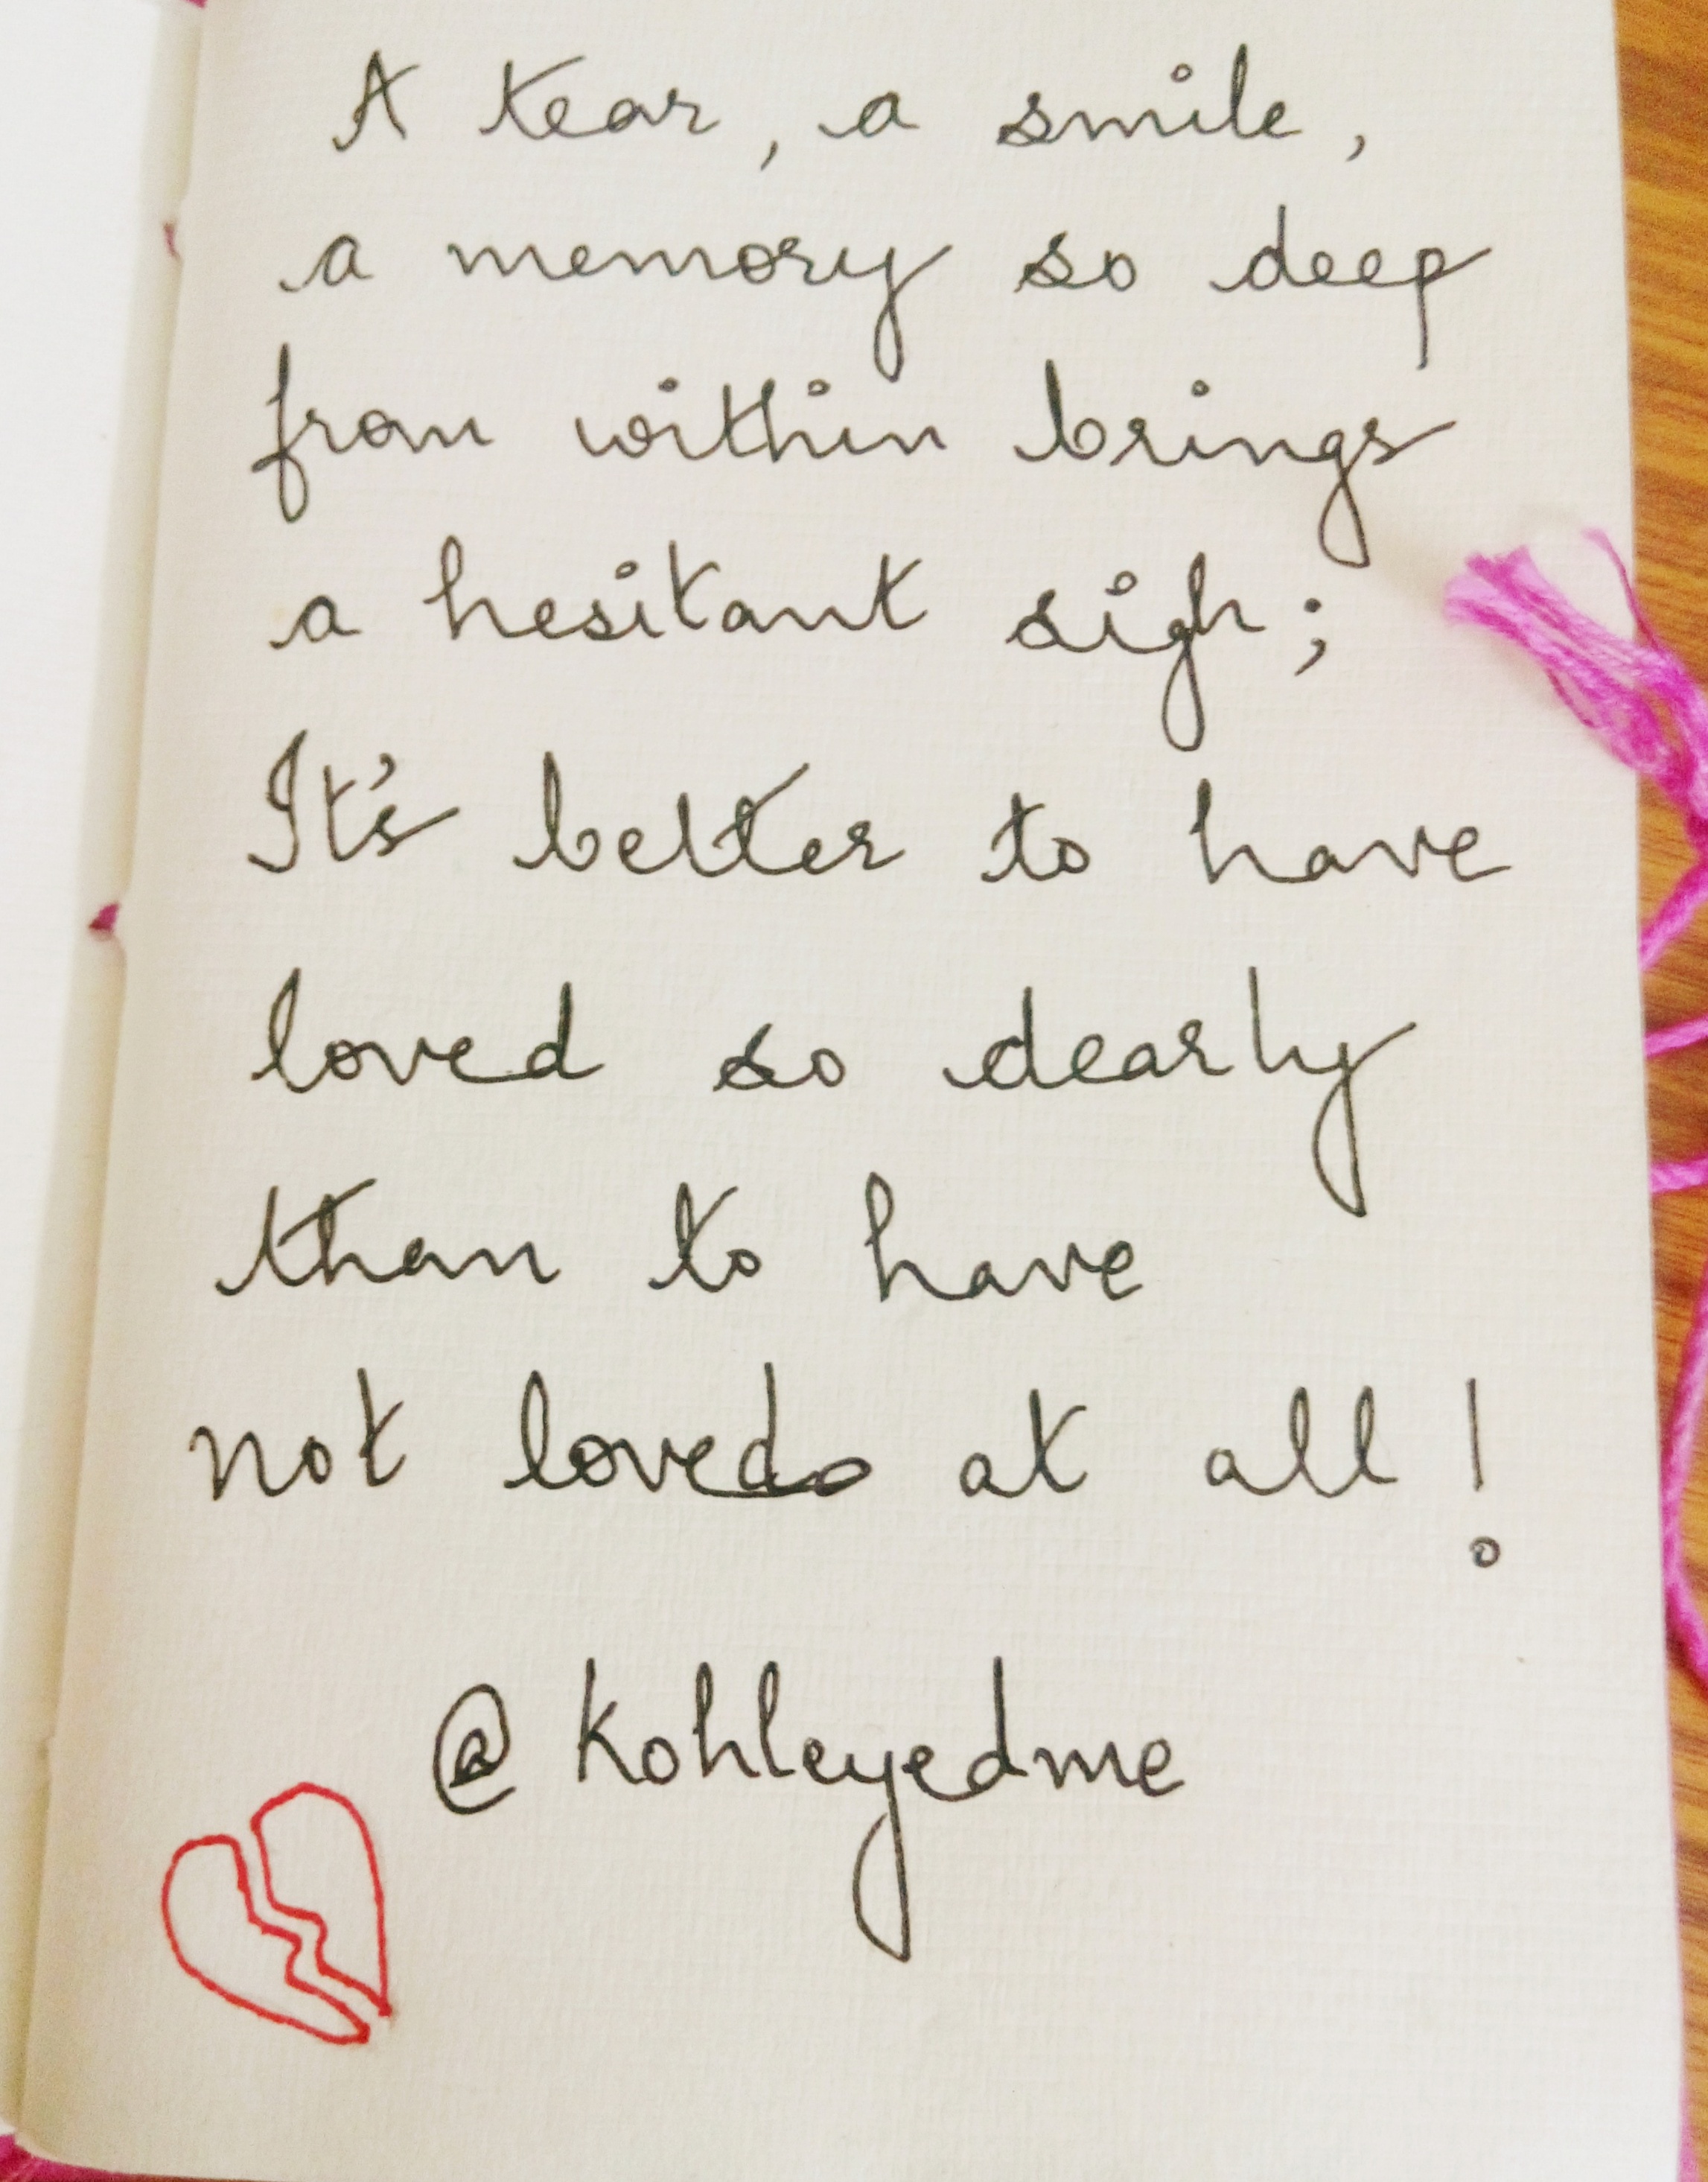 A tear, a smile,
a memory so deep
from within brings
a hesitant sigh;
It's better to have
loved so dearly
than to have
not loved at all!
@kohleyedme